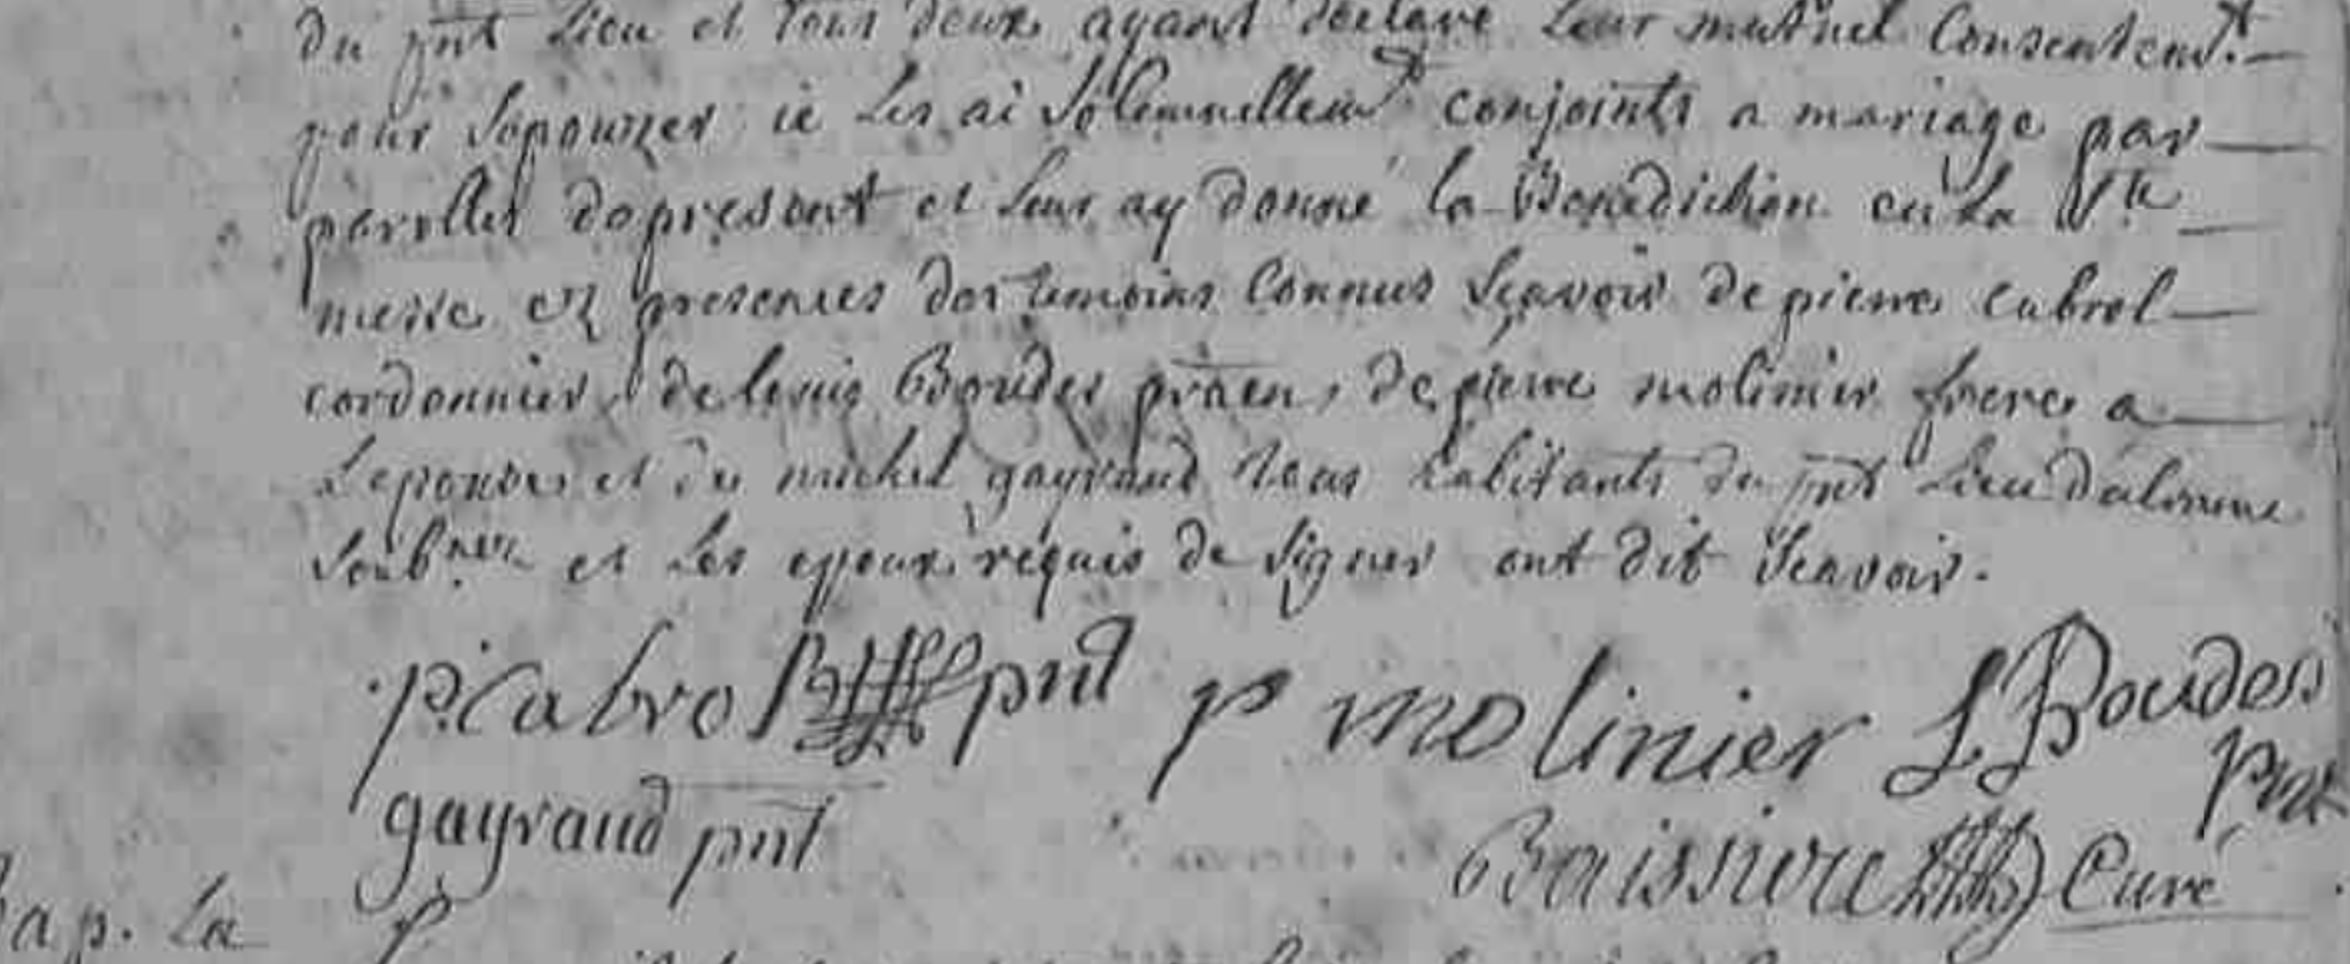 du pnt Lieu et tous deux ayant déclaré Leur mutuel Consentemt.
pour Sepouzer ie Les ai Solemnellemt conjoints a mariage par
parolles de present et Leur ay donné la Benediction en La Ste
messe ez presences des temoins Connus Sçavoir de pierre cabrol
cordonnier, de louis Boudes praen, de pierre molinier frere a
Lepouse et de michel gayraud tous habitants du pnt Lieu
et Les epoux requis de Signer ont dit Scavoir.
p. Cabrol pnt p molinier L. Boudes
pnt
gayraud pnt
Boissiere Curé
bap. La